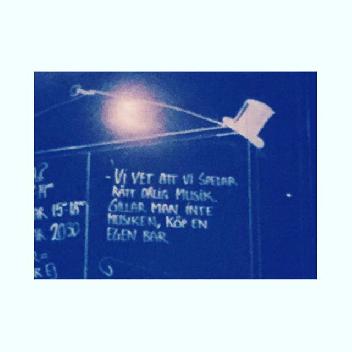 - VI VET ATT VI SPELAR
RÄTT DÅLIG MUSIK.
GILLAR MAN INTE
MUSIKEN, KÖP EN
EGEN BAR
15-18
20